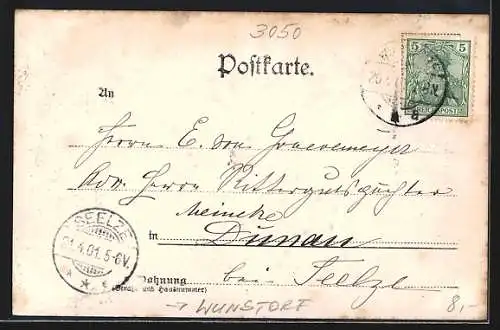 3050
Postkarte.
5 5
REICHSPOST
An
Herrn E. von
Adr. Herrn Rittergutspächter
Meineke
in Dunau
bei Seelze
SEELZE
21.4.01.5-6V
Wohnung
(Straße und Hausnummer)
→ WUNSTORF
8,-